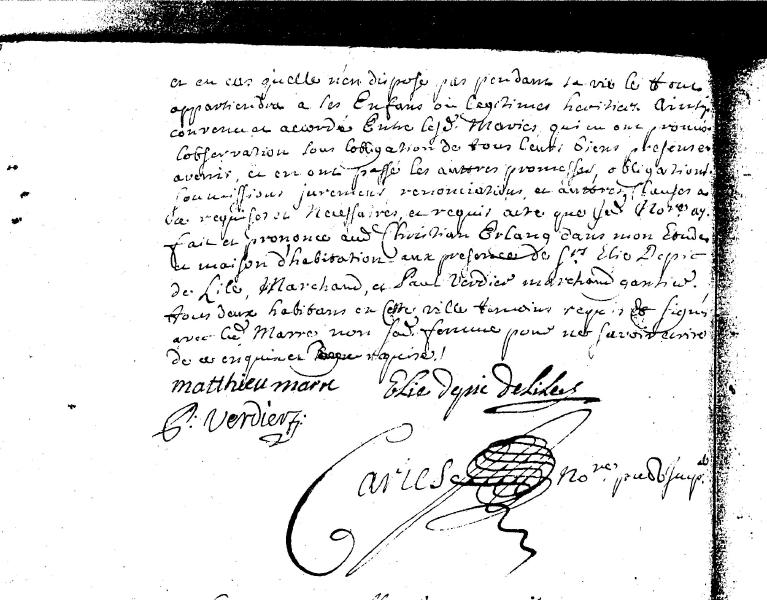 et en cas quelle n'en dispose pas pendant sa vie le tout
appartiendra a ses Enfans ou legitimes heritiers Ainsy
convenu et accordé Entre lesd. Mariés, qui en ont promis
l'observation sous l'obligation de tous leurs biens presens et
avenir, et en ont passé les autres promesses, obligations
soumissions jurement, renonciations, et autres Clauses a
ce requises et Necessaires, et requis acte que je d. No.re ay
fait et prononcé aud. Christian Erlang dans mon Etude
et maison d'habitation aux presences de S.rs Elie Depic
de Lile, Marchand, et Paul Verdier marchand gantier
tous deux habitans en cette ville temoins requis et signés
avec led. Marre non sad. femme pour ne savoir écrire
de ce enquise et requise.
matthieu marre Elie depic deLiles
P. Verdier
Caries No.re